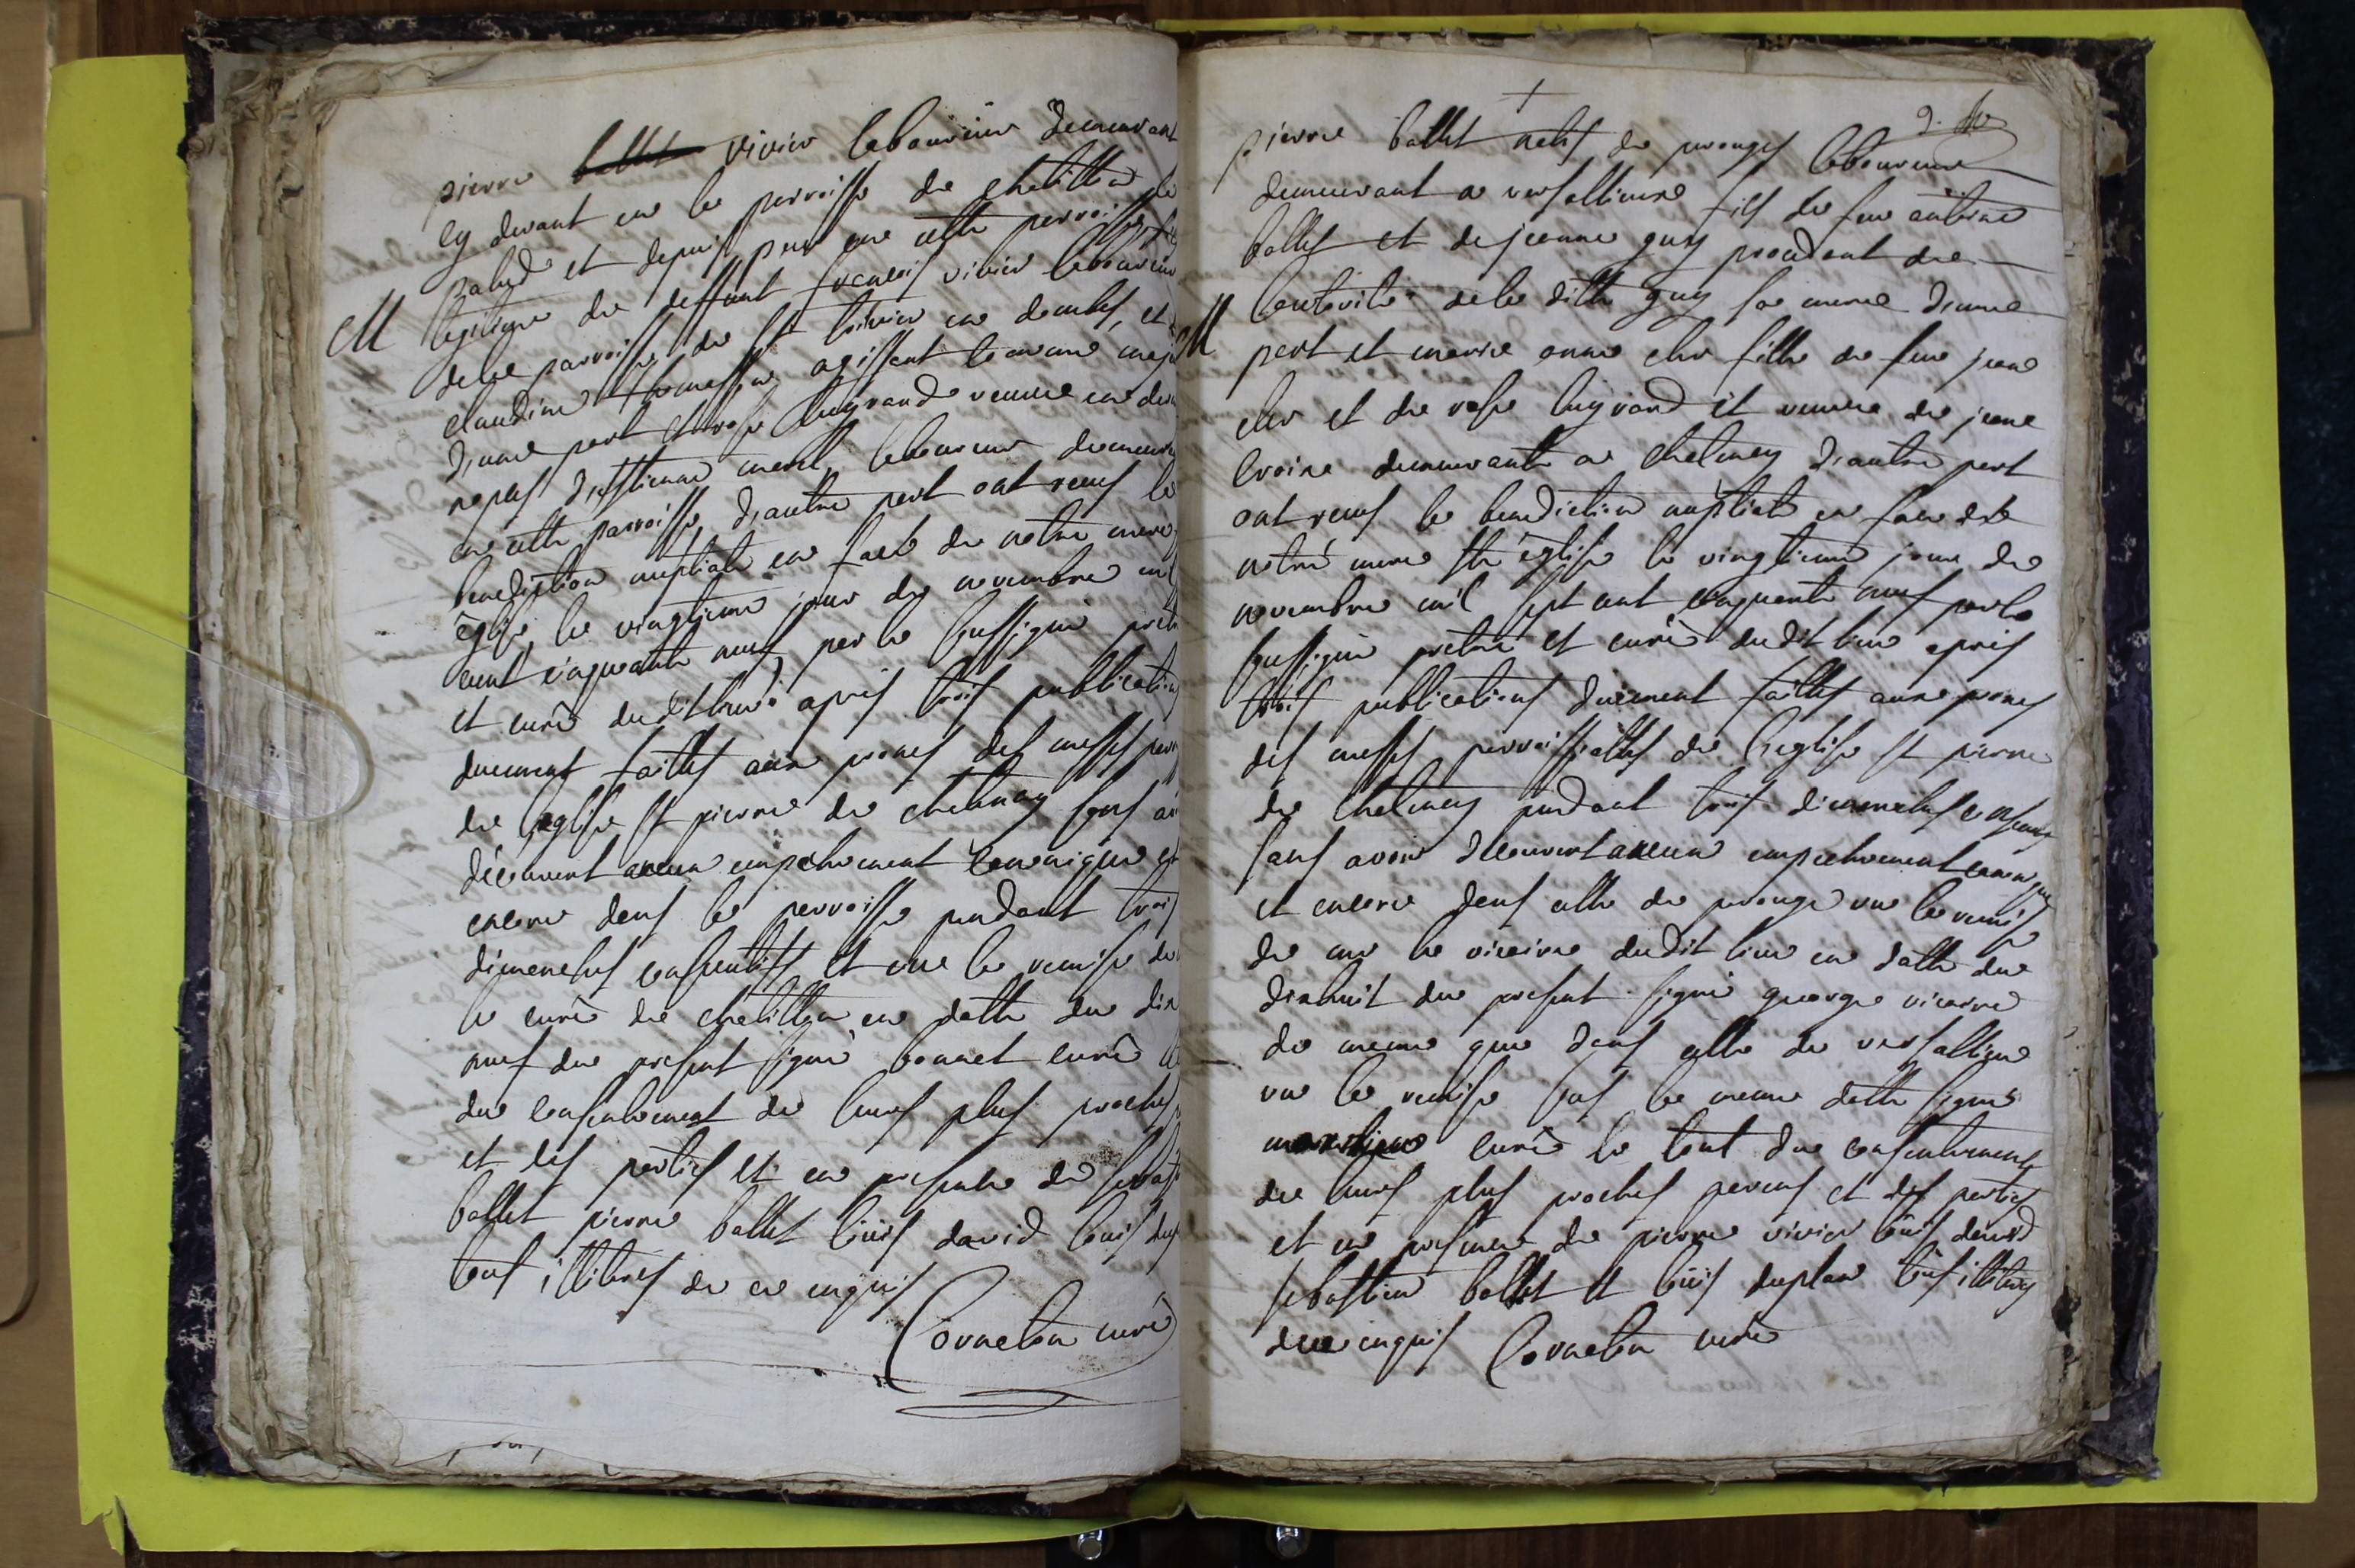 pierre ballet vivier laboureur demeurant
cy devant en la parroisse de chatillon la
palud et depuis peu en cette parroisse fils
legitime de deffunt francois vivier laboureur
M
de la parroisse de st trivier en dombes, et
claudine agissant comme maj
d'une part et rose lugrand veuve en der
nopces d'estienne morel laboureur demeura
en cette parroisse, d'autre part ont recus la
benediction nuptiale en face de notre mere
église, le vingtieme jour de novembre mil
cent cinquante neuf par le soussigné prêtr
et curé dudit lieu après trois publications
duement faittes aux prones des messes parr
de l'eglise st pierre de chatenay sans av
découvert aucun empêchement canonique et
encore dans la parroisse pendant trois
dimanches consecutifs et vue la remise de
le curé de chatillon en datte du dix
neuf du present signé bonnet curé le
du consentement de leurs plus proches
et des parties et en presence de sebast
ballet pierre ballet loüis david loüis dup
tous illitérés de ce enquis
Corneton curé
+
9.
pierre ballet natif de prouges laboureur
demeurant a versallieux fils de feu antoine
ballet et de jeanne guy procedant de
l'autorité de la ditte guy sa mere d'une
M
part et marie anne cler fille de feu jean
cler et de rose lugrand et veuve de jean
demeurante a chatenay d'autre part
ont recus la benediction nuptiale en face de
notre mere ste église le vingtieme jour de
novembre mil sept cent cinquante neuf par le
soussigné prêtre et curé dudit lieu après
trois publications duement faittes aux prones
des messes parroissialles de l'eglise st pierre
de chatenay pendant trois dimanches
sans avoir decouvert aucun empechement canonique
et encore dans celle de prouge vue la remise
de mr le vicaire dudit lieu en datte du
dixhuit du present signé george vicaire
de meme que dans celle de versallieux
vue la remise sous la meme datte signé
curé le tout du consentement
de leurs plus proches parens et des parties
et en presence de pierre vivier loüis david
sebastien ballet et loüis duplan tous illiterés
de ce enquis Corneton curé